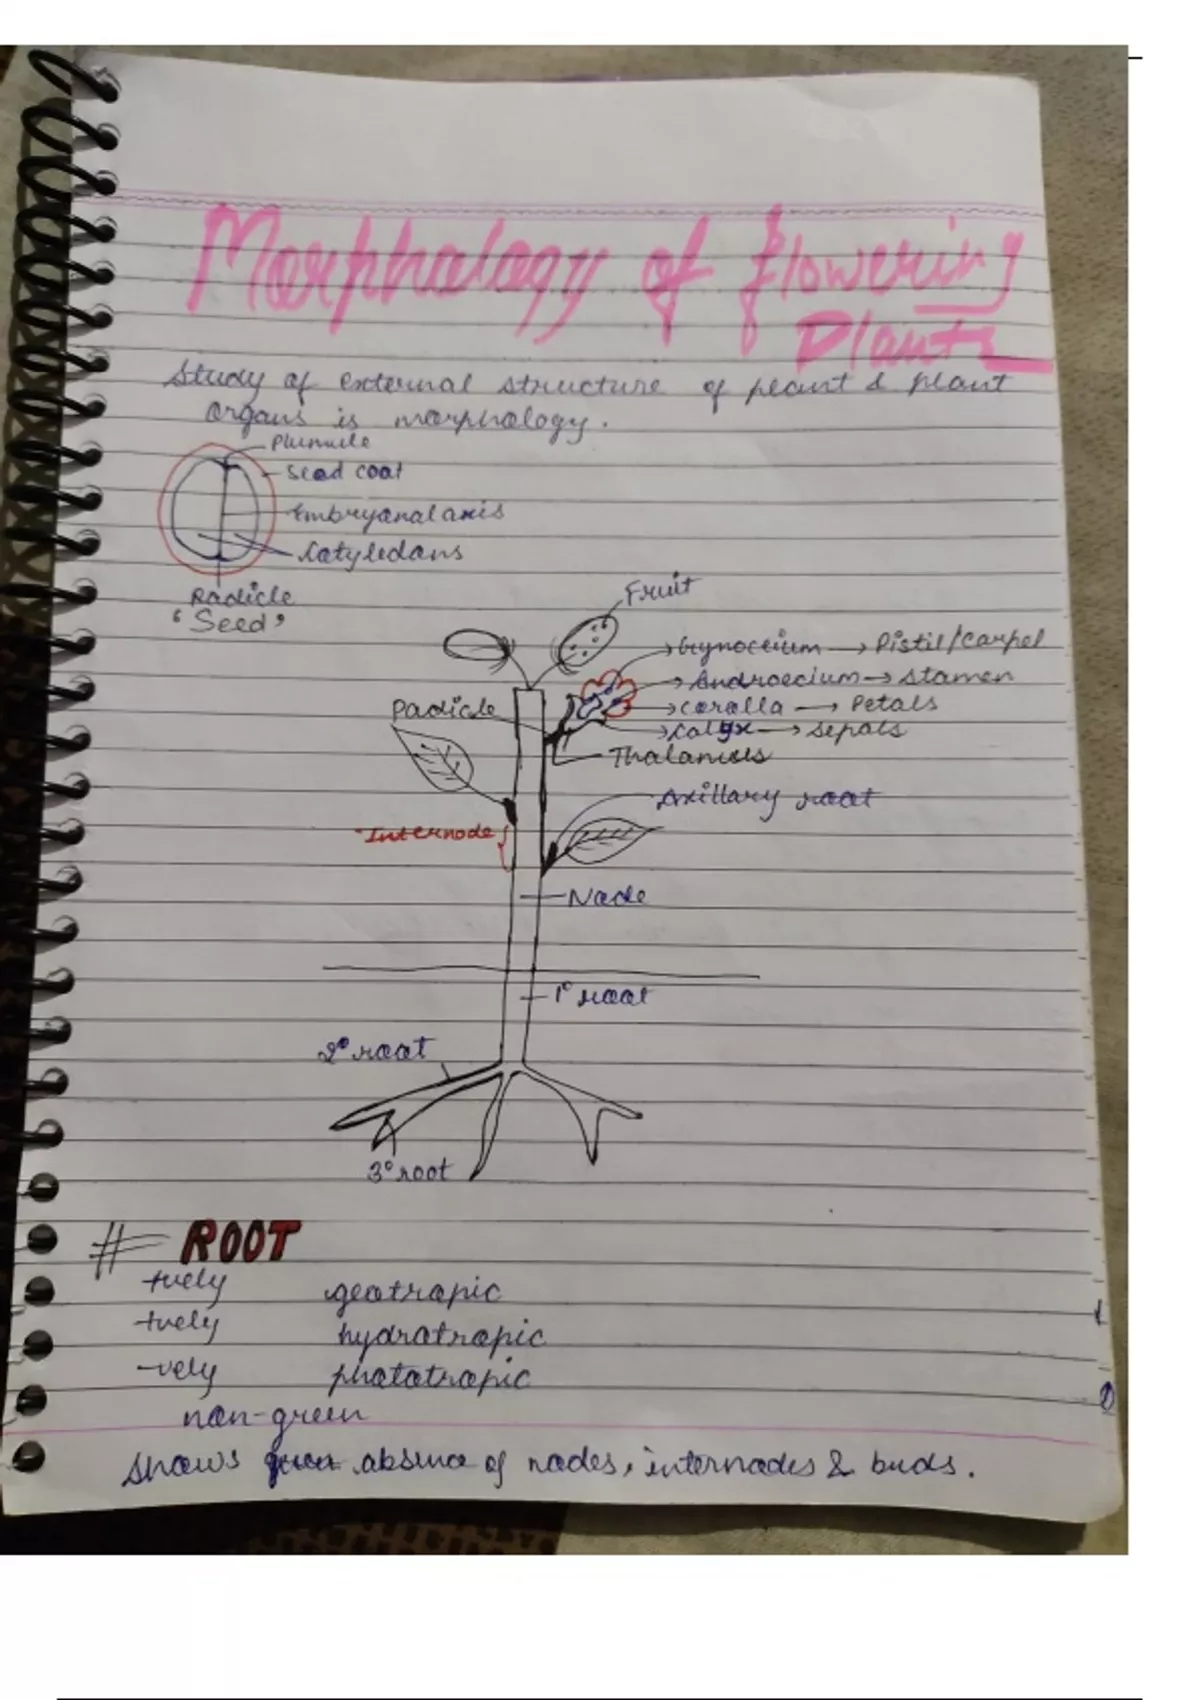 Morphology of flowering
Plants
Study of external structure of plant & plant
organs is morphology.
Plumule
Seed coat
Embryonal axis
Cotyledons
Radicle
'Seed'
Fruit
Gynoceium → Pistil/Carpel
Androecium → Stamen
Corolla → Petals
Calyx → Sepals
Thalamus
Padicle
Axillary root
Internode
Node
1° root
2° root
3° root
# ROOT
+vely geotropic
+vely hydrotropic
-vely phototropic
non-green
Shows absence of nodes, internodes & buds.